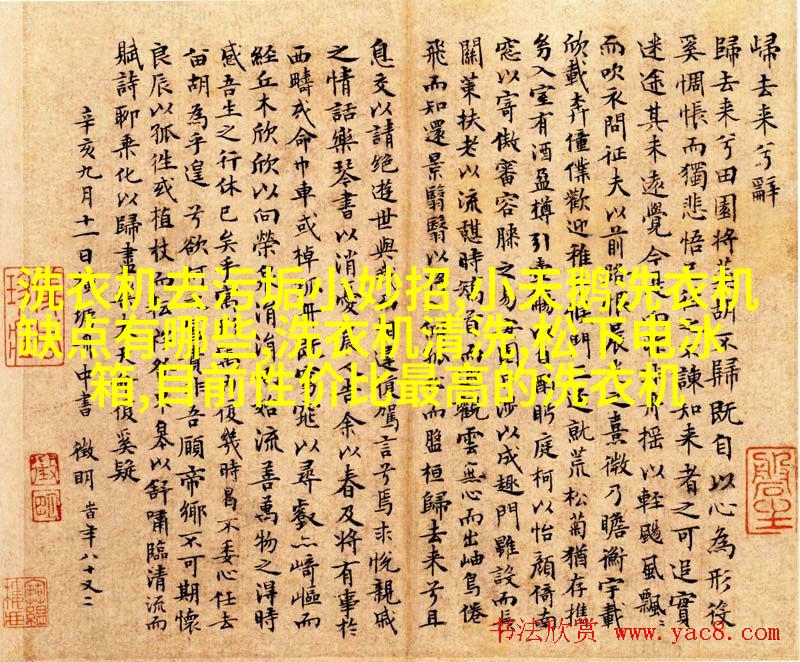 歸去来兮辭
歸去来兮田園將蕪胡不歸既自以心為形役
奚惆悵而獨悲悟已之不諫知来者之可追實
迷途其未遠覺今是搖以輕颺風飄〻
而吹衣問征夫以前路恨晨熹微乃瞻衡宇載
欣載奔僮僕歡迎稚門三逕就荒松菊猶存攜
幼入室有酒盈樽引壺酌眄庭柯以怡顏倚南
窓以寄傲審容膝之易安日涉以成趣門雖設而長
關策扶老以流憇時矯首而觀雲無心而出岫鳥倦
飛而知還景翳翳以將而盤桓歸去来兮且
息交以請絶遊世與我遺復駕言兮焉求悅親戚
之情話樂琴書以消憂農人告余以春及將有事於
西疇或命巾車或棹窕以尋壑亦崎嶇而
經丘木欣欣以向榮泉涓始流善萬物之得時
感吾生之行休已矣乎寓復幾時曷不委心任去
留胡為乎遑兮欲何貴非吾願帝鄉不可期懷
良辰以孤往或植杖而耘皋以舒嘯臨清流而
賦詩聊乘化以歸盡天復奚疑
辛亥九月十一日中書 徵明 時年八十又二
洗衣机去污垢小妙招,小天鹅洗衣机
缺点有哪些,洗衣机清洗,松下电冰
箱,目前性价比最高的洗衣机
书法欣赏 www.yac8.com